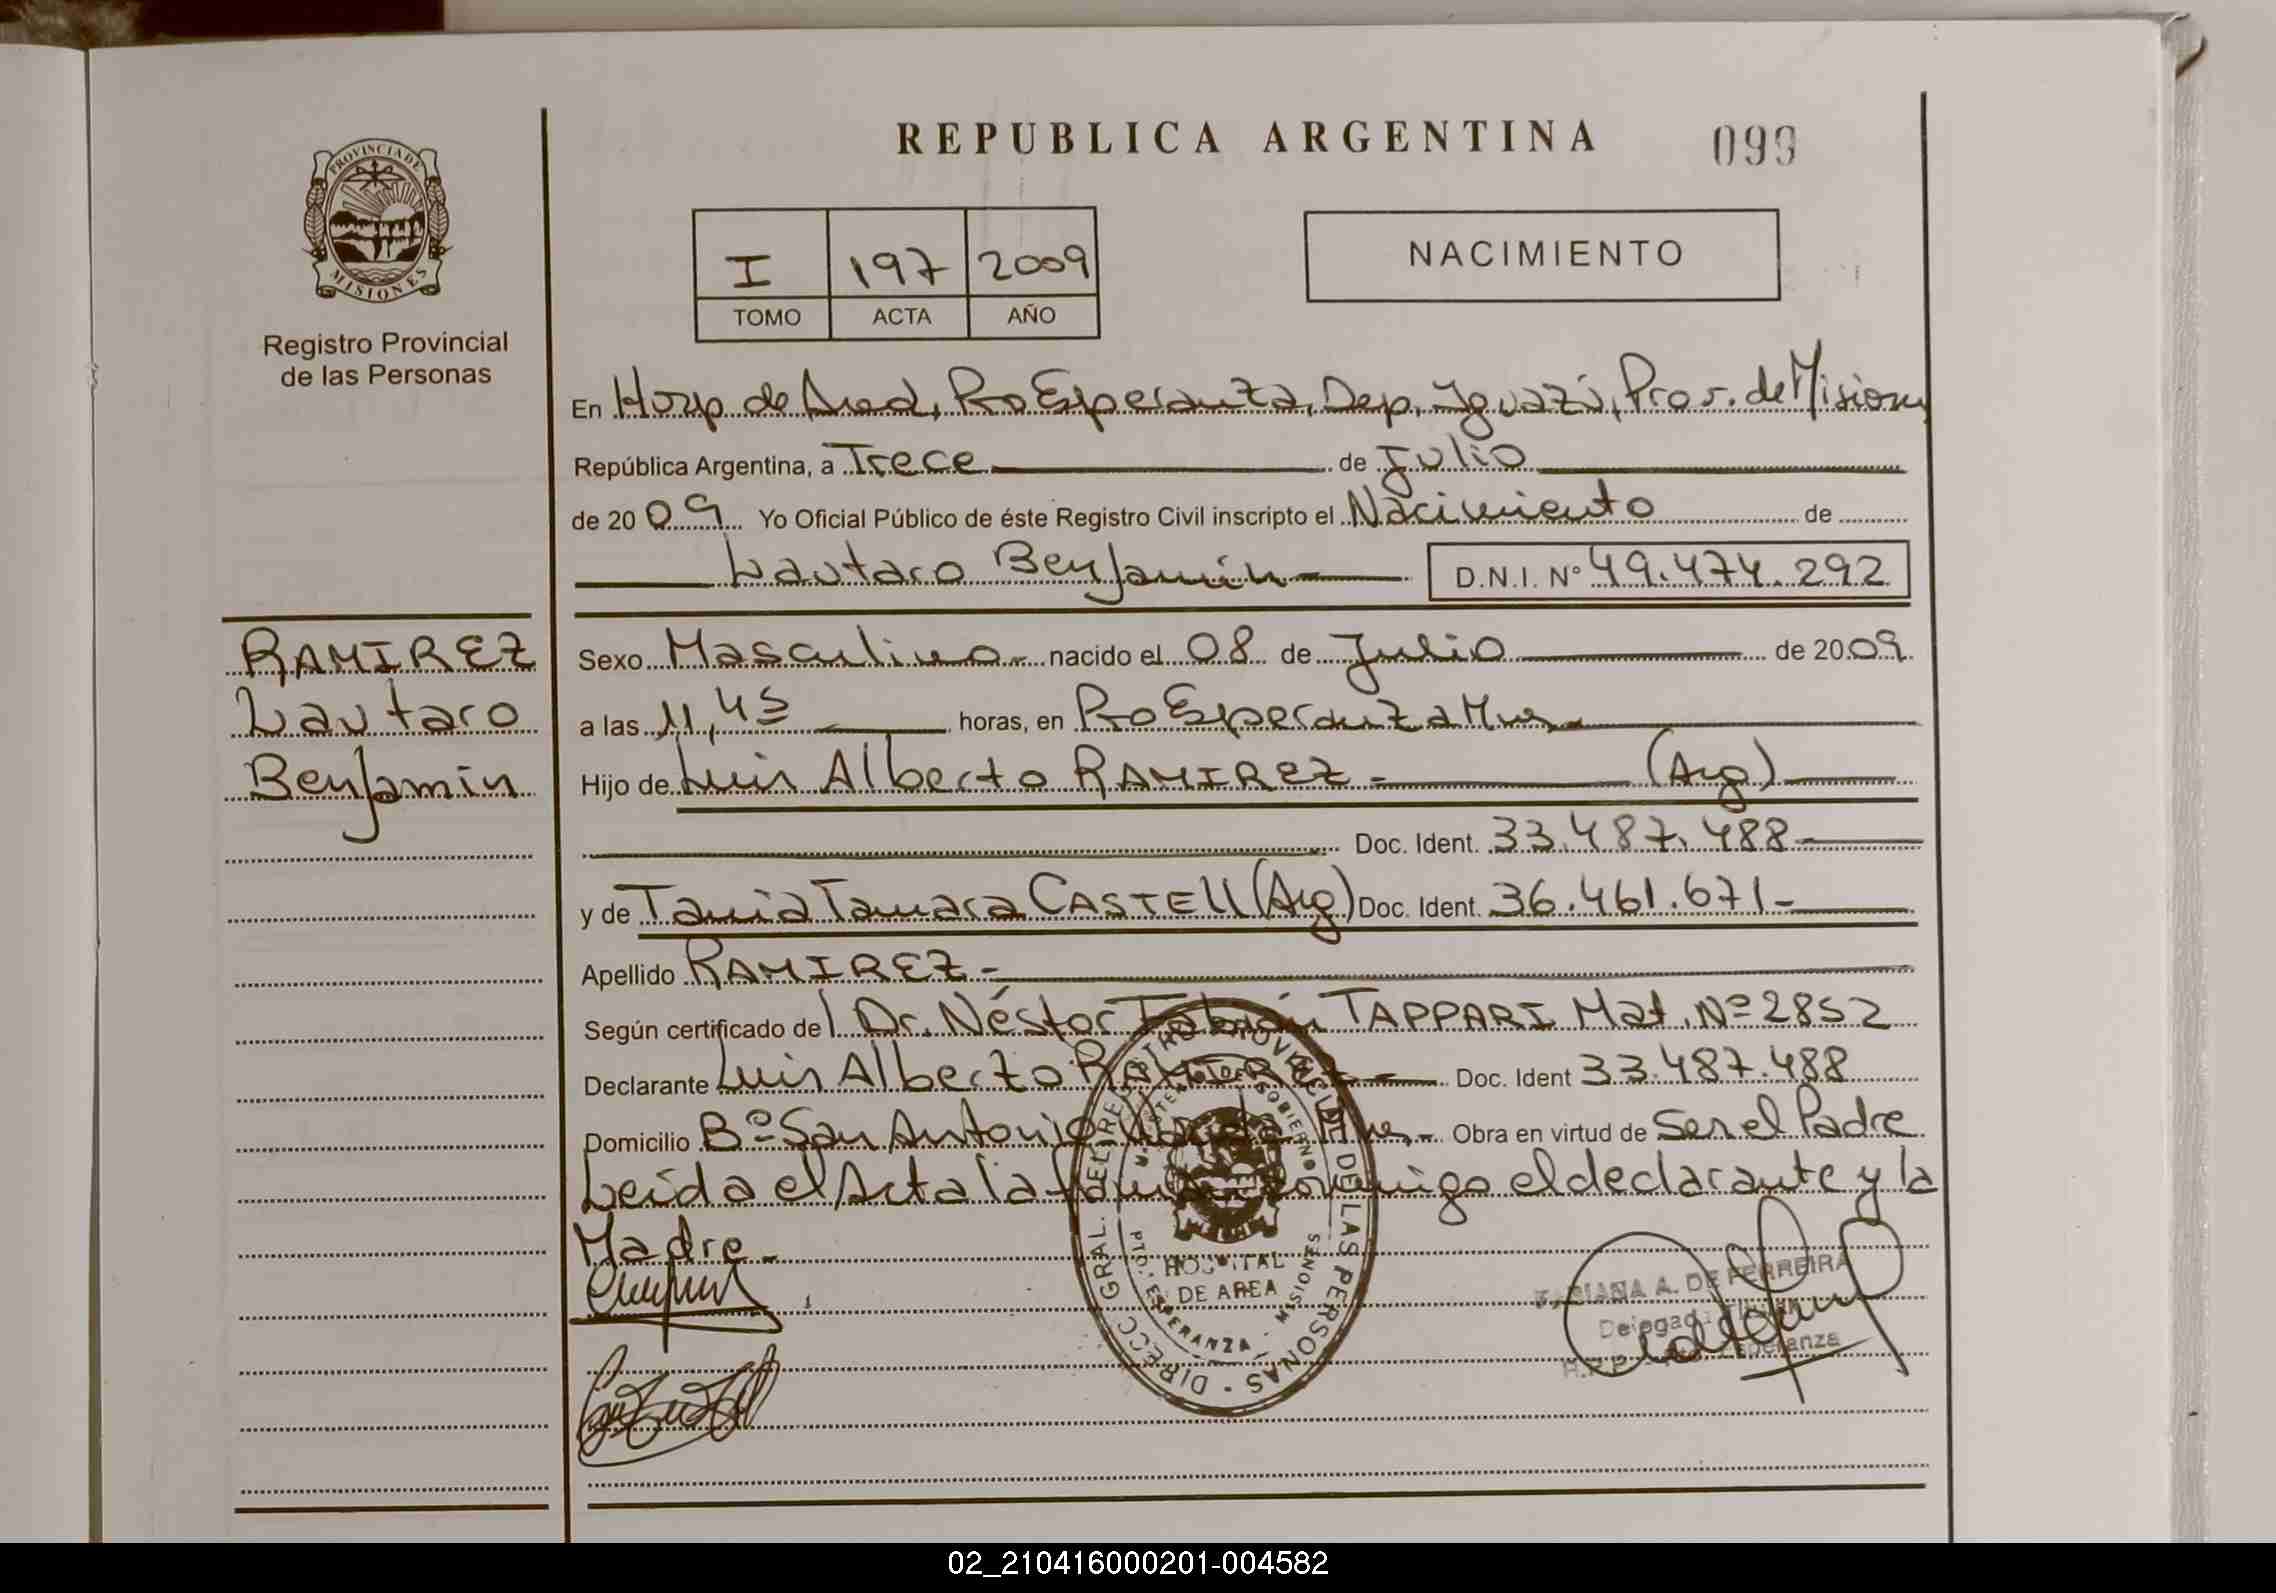 REPUBLICA ARGENTINA
099
PROVINCIA DE
MISIONES
Registro Provincial
de las Personas
I 197 2009
TOMO ACTA AÑO
NACIMIENTO
En Hosp de Area, Pto Esperanza, Dep, Iguazú, Prov. de Misiones
República Argentina, a Trece de Julio
de 2009 Yo Oficial Público de éste Registro Civil inscripto el Nacimiento de
Lautaro Benjamin D.N.I. Nº 49.474.292
RAMIREZ
Lautaro
Benjamin
Sexo Masculino nacido el 08 de Julio de 2009
a las 11,45 horas, en Pto Esperanza Mnes
Hijo de Luis Alberto RAMIREZ - (Arg)
Doc. Ident. 33.487.488
y de Tania Tamara CASTELL (Arg) Doc. Ident. 36.461.671
Apellido RAMIREZ
Según certificado del Dr. Néstor Fabián TAPPARI Mat. Nº 2852
Declarante Luis Alberto RAMIREZ Doc. Ident 33.487.488
Domicilio Bº San Antonio Mnes Obra en virtud de Ser el Padre
Leida el Acta la conmigo el declarante y la
Madre
DIRECC. GRAL. DEL REGISTRO PROVINCIAL DE LAS PERSONAS
HOSPITAL
DE AREA
PTO. ESPERANZA - MISIONES
A. DE FERREIRA
Esperanza
02_210416000201-004582